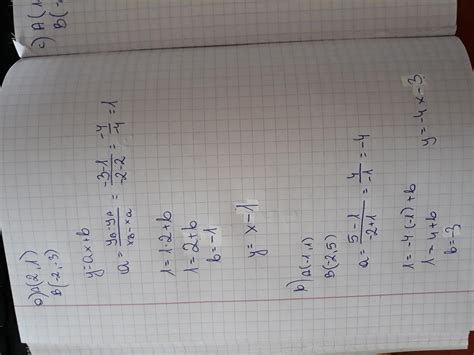 a) A(2,1)
B(-2,-3)
y=ax+b
a= (yB-yA)/(xB-xA) = (-3-1)/(-2-2) = -4/-4 =1
1=1·2+b
1=2+b
b=-1
y= x-1
b) A(-1,1)
B(-2,5)
a= (5-1)/(-2+1) = 4/-1 =-4
1=-4·(-1)+b
1=4+b
b=-3
y=-4x-3
c) A(1
B(-